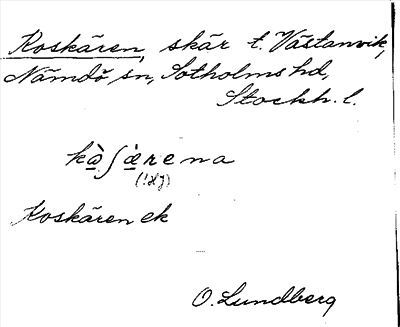 Koskären, skär t. Västanvik,
Nämdö sn, Sotholms hd,
Stockh. l.
kɑ̀ʃæ̀rena
Koskären ek
O. Lundberg